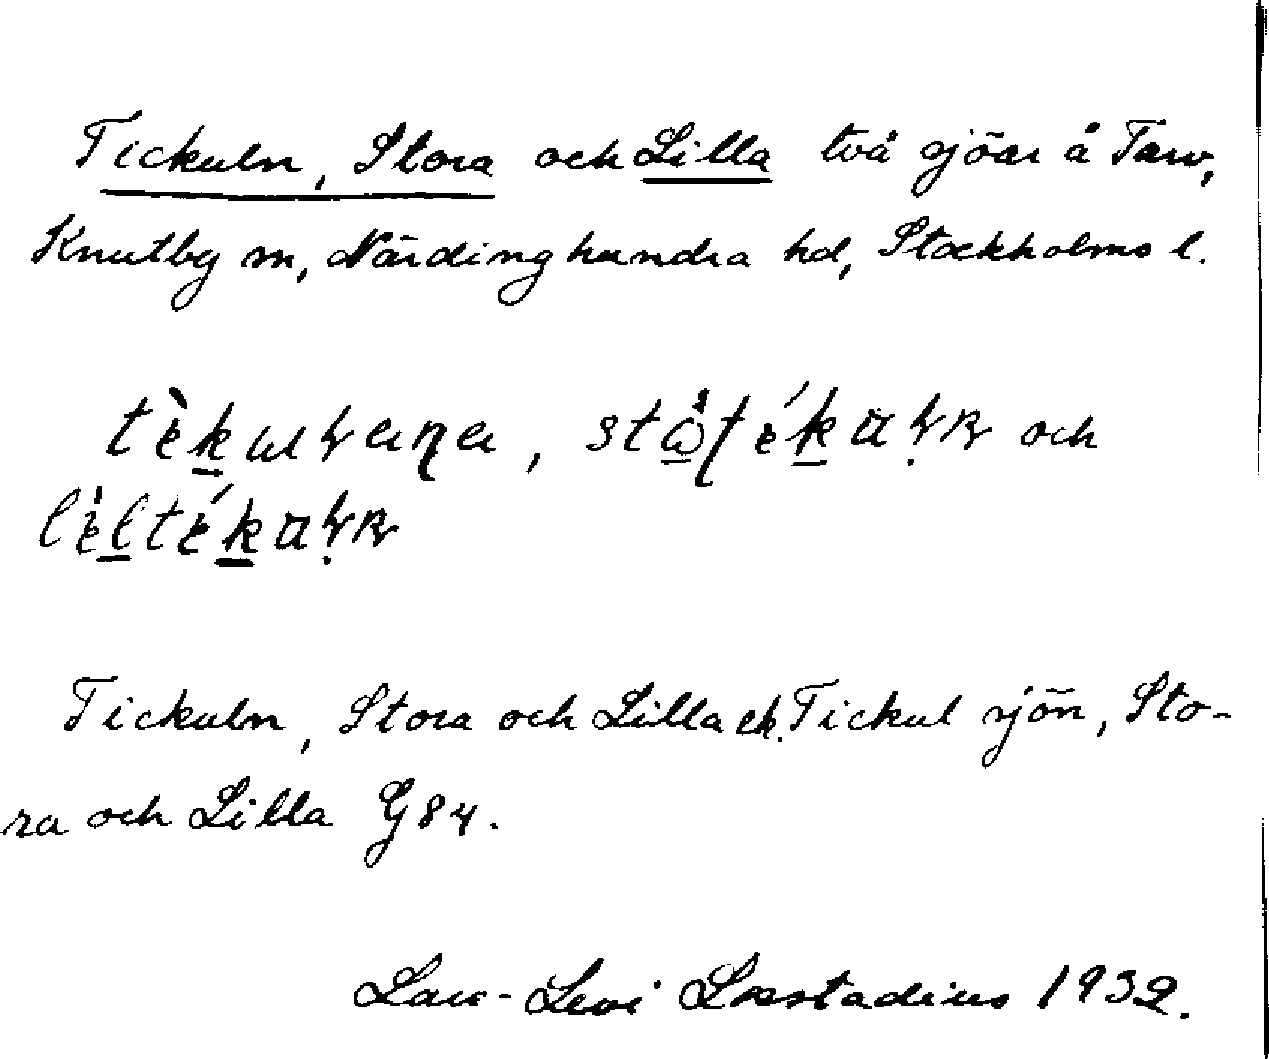 Tickuln, Stora och Lilla två sjöar å Tarv,
Knutby sn, Närdinghundra hd, Stockholms l.
och
Tickuln, Stora och Lilla el. Tickulsjön, Sto-
ra och Lilla G 84.
Lars-Levi Læstadius 1932.